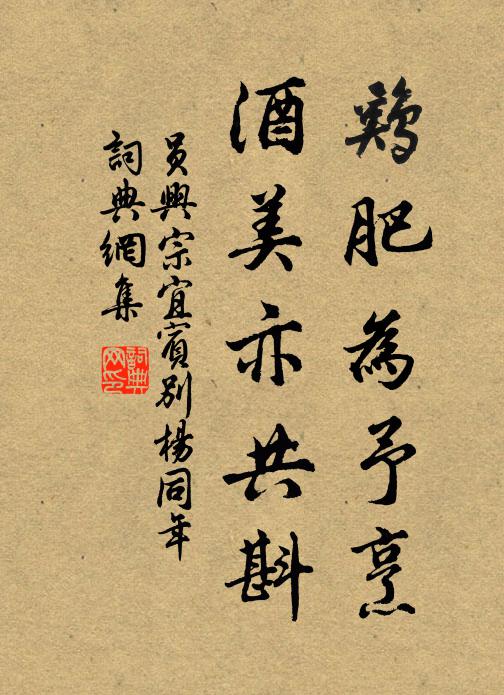 鷄肥為予烹
酒美亦共斟
員興宗宜賓別楊同年
詞典網集
詞典網印